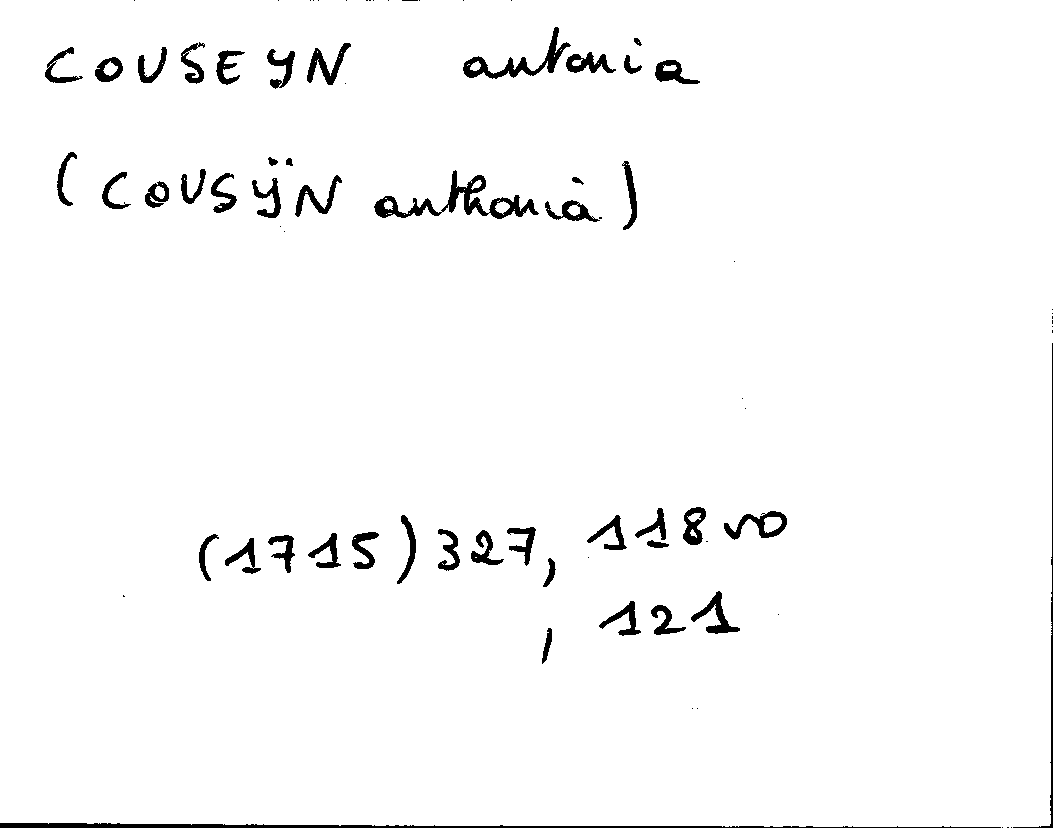 COUSEYN antonia
(COUSŸN anthonia)
(1715) 327, 118 vo
, 121